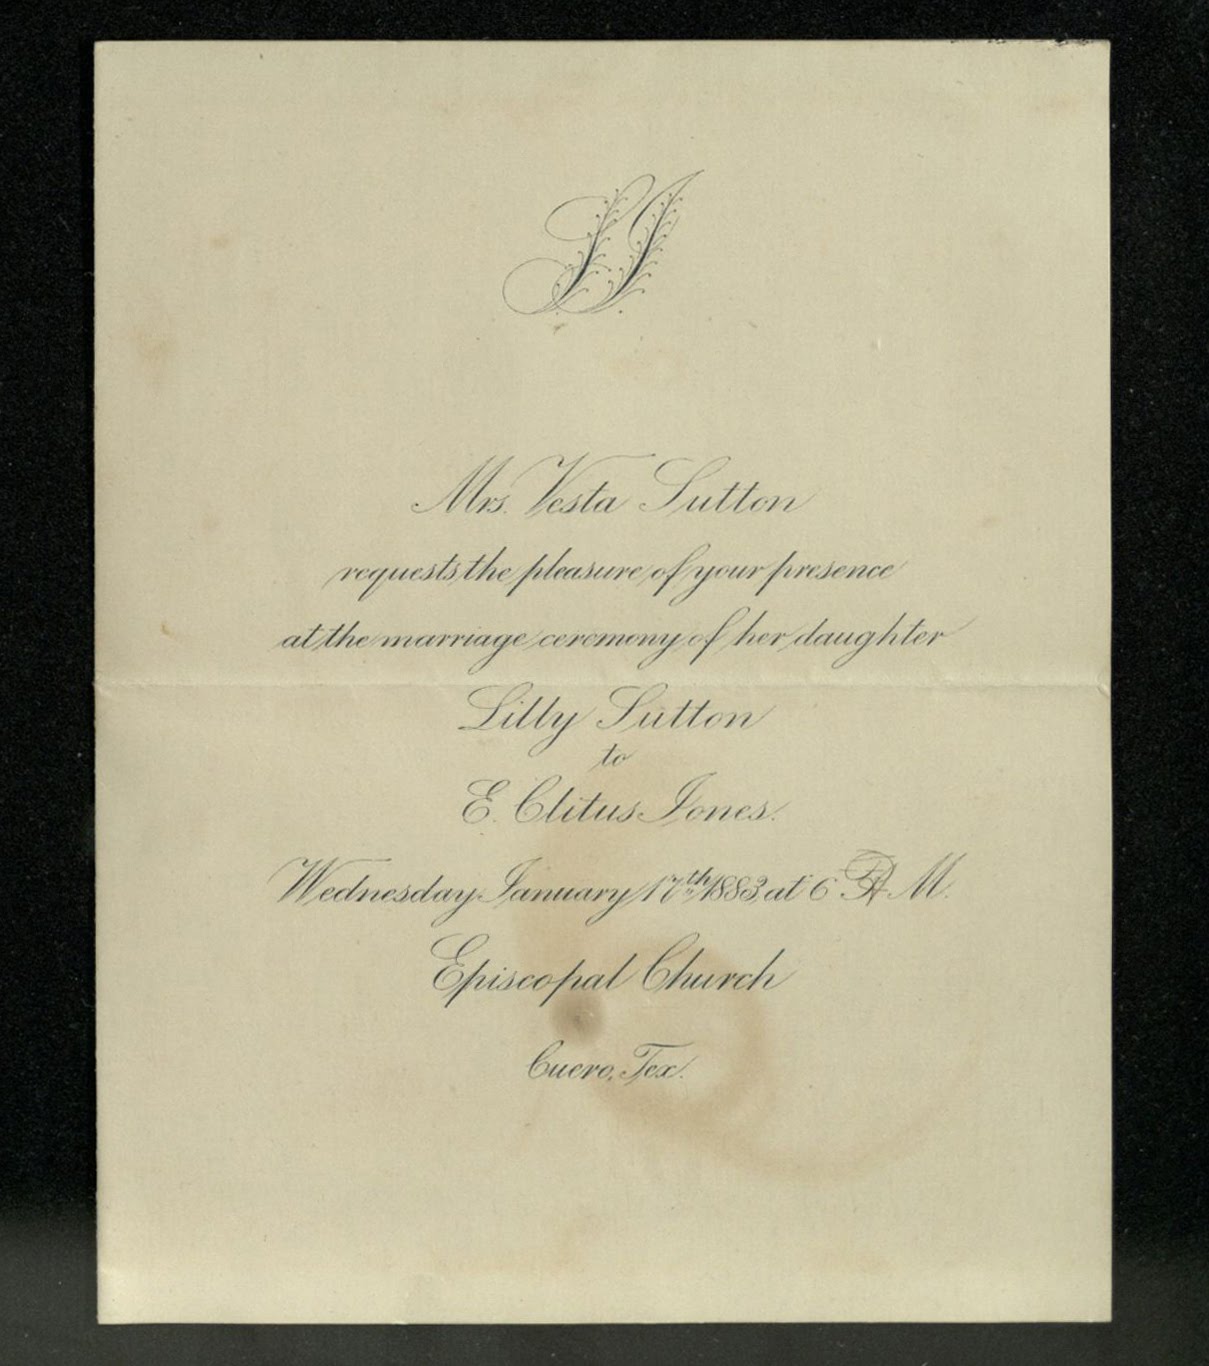 SJ
Mrs. Vesta Sutton
requests the pleasure of your presence
at the marriage ceremony of her daughter
Lilly Sutton
to
E. Clitus Jones.
Wednesday January 17th 1883, at 6 M.
Episcopal Church
Cuero, Tex.